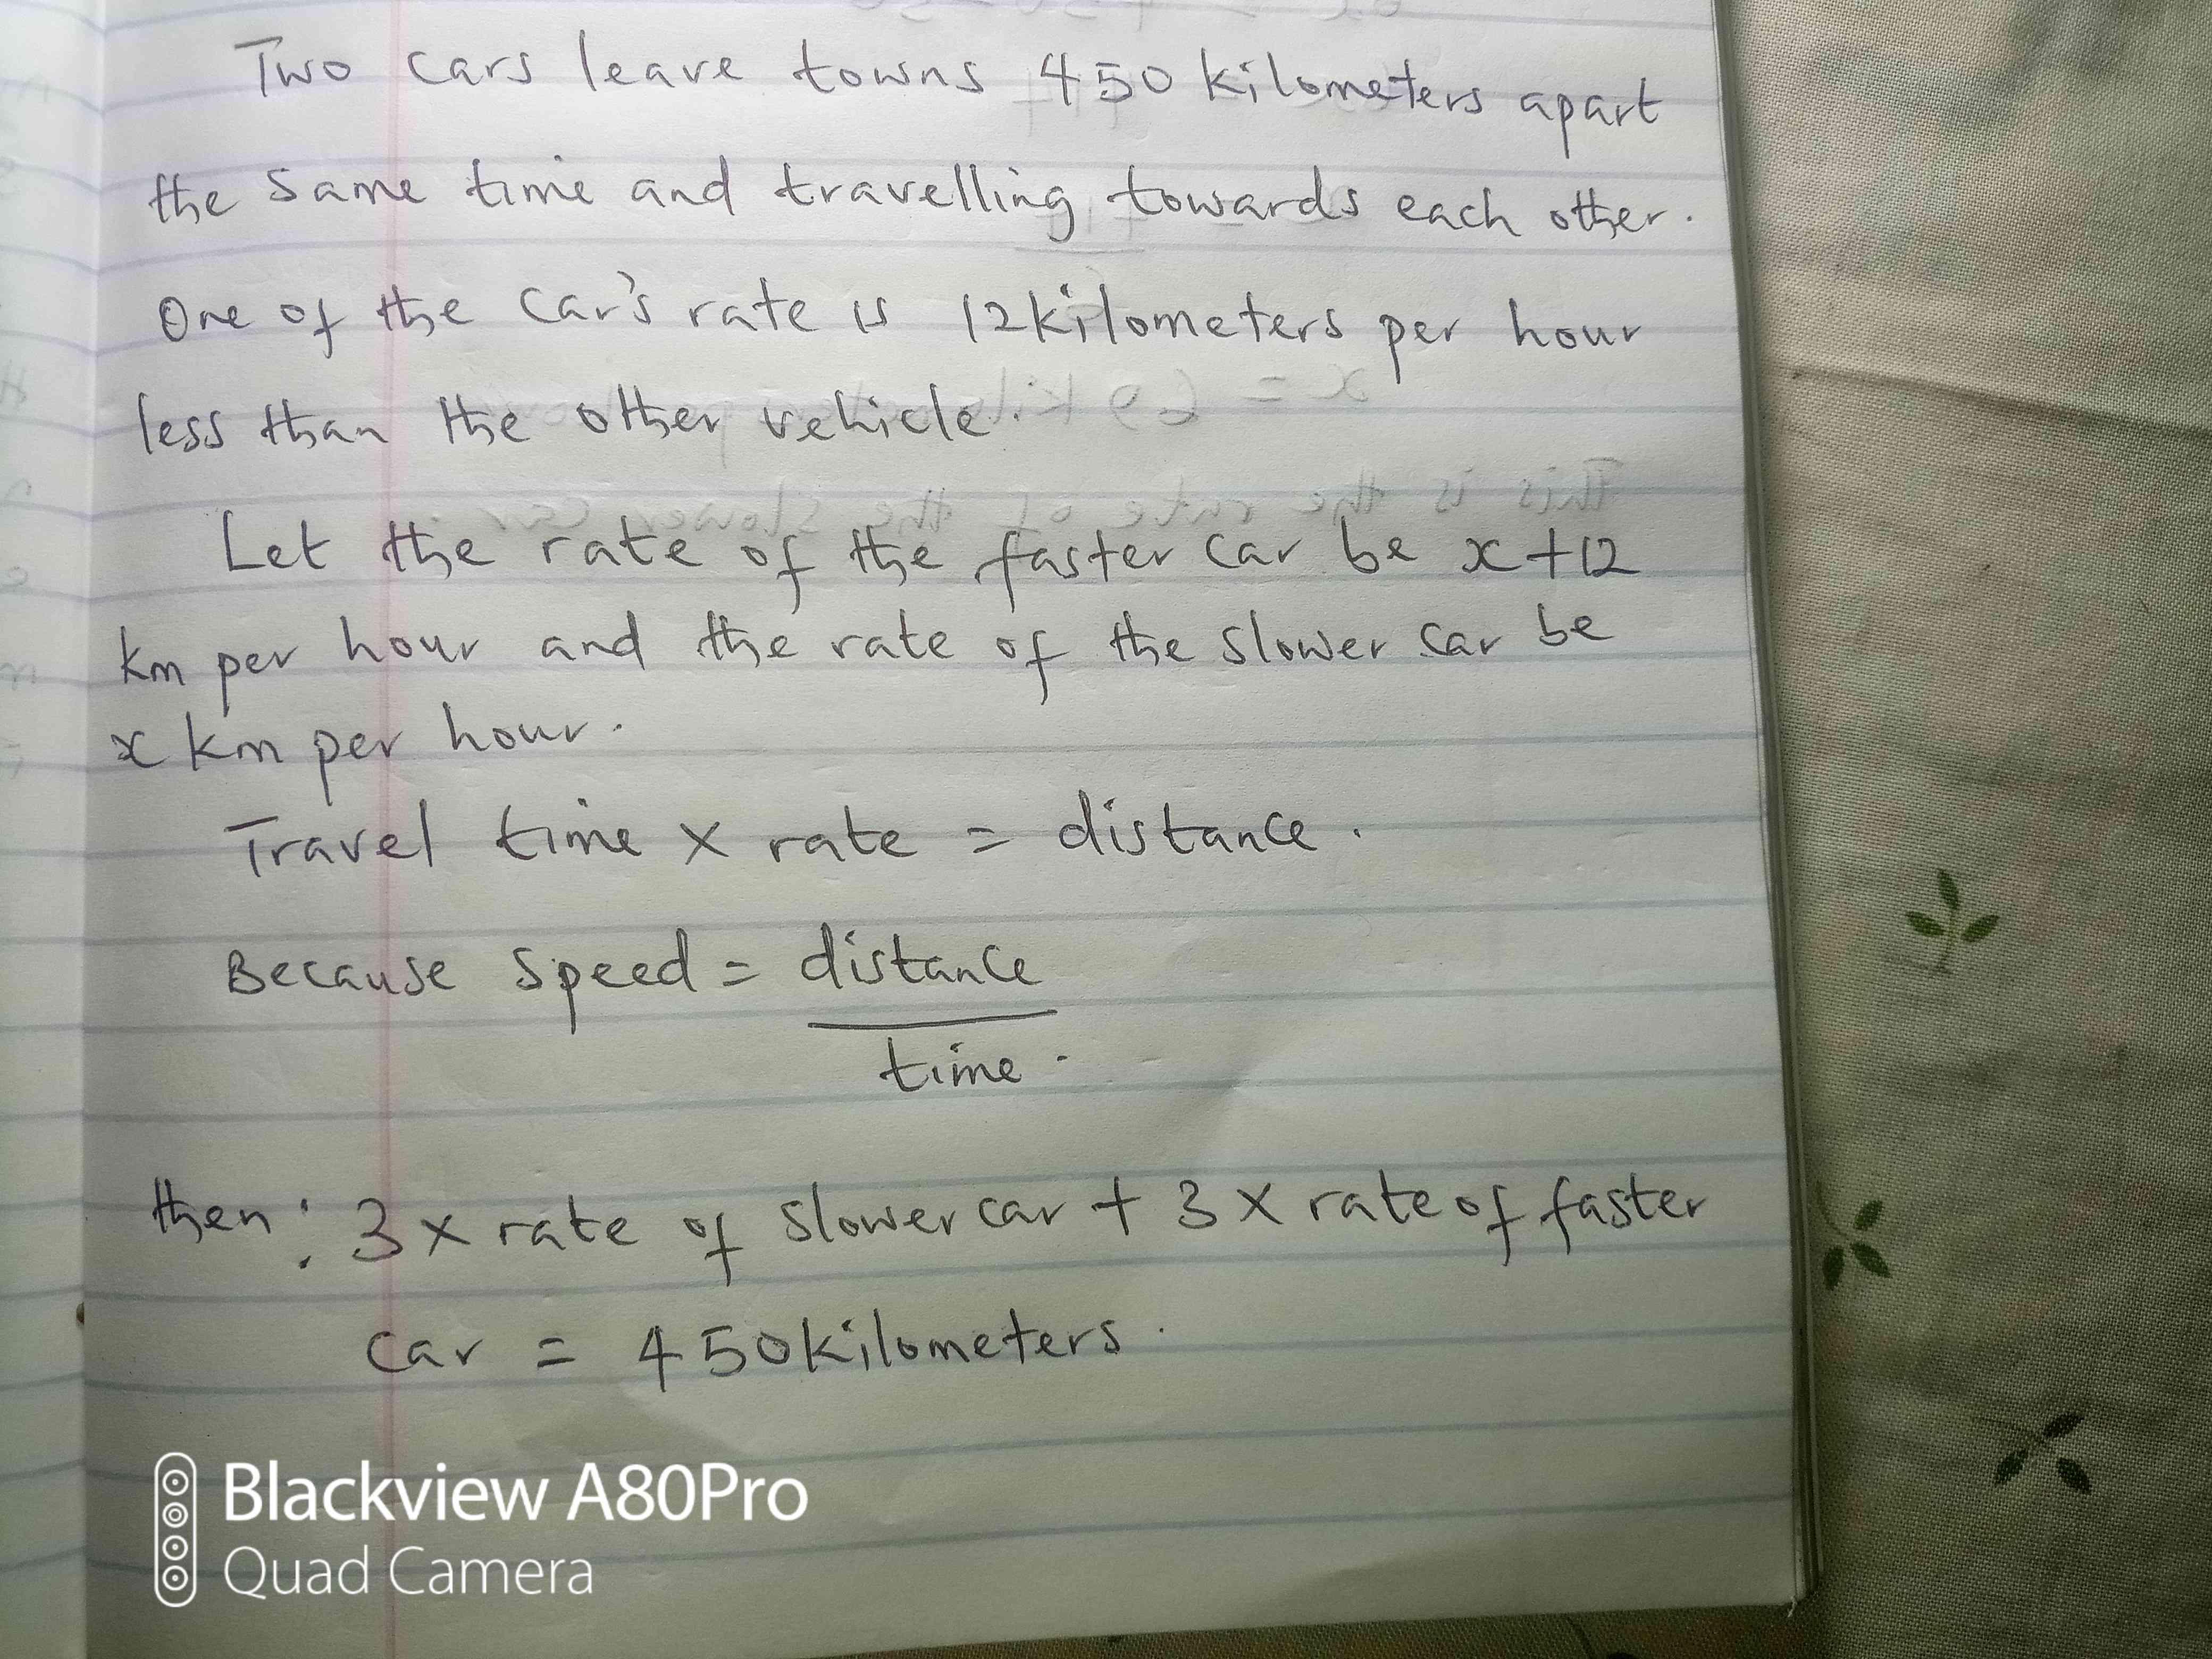 Two cars leave towns 450 kilometers apart
the same time and travelling towards each other.
One of the car's rate is 12kilometers per hour
less than the other vehicle.
Let the rate of the faster car be x+12
km per hour and the rate of the slower car be
x km per hour.
Travel time × rate = distance.
Because speed = distance
time.
then: 3 × rate of slower car + 3 × rate of faster
car = 450kilometers.
Blackview A80Pro
Quad Camera